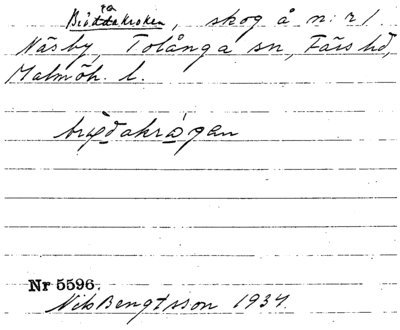 skog å n:r 1
Näsby, Tolånga sn, Färs hd,
Malmöh. l.
Nr 5596.
Nils Bengtsson 1934